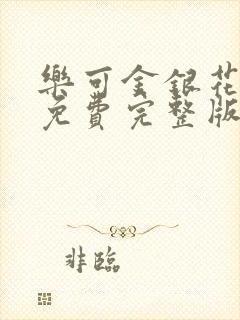 樂可金銀花
免費完整版
非臨